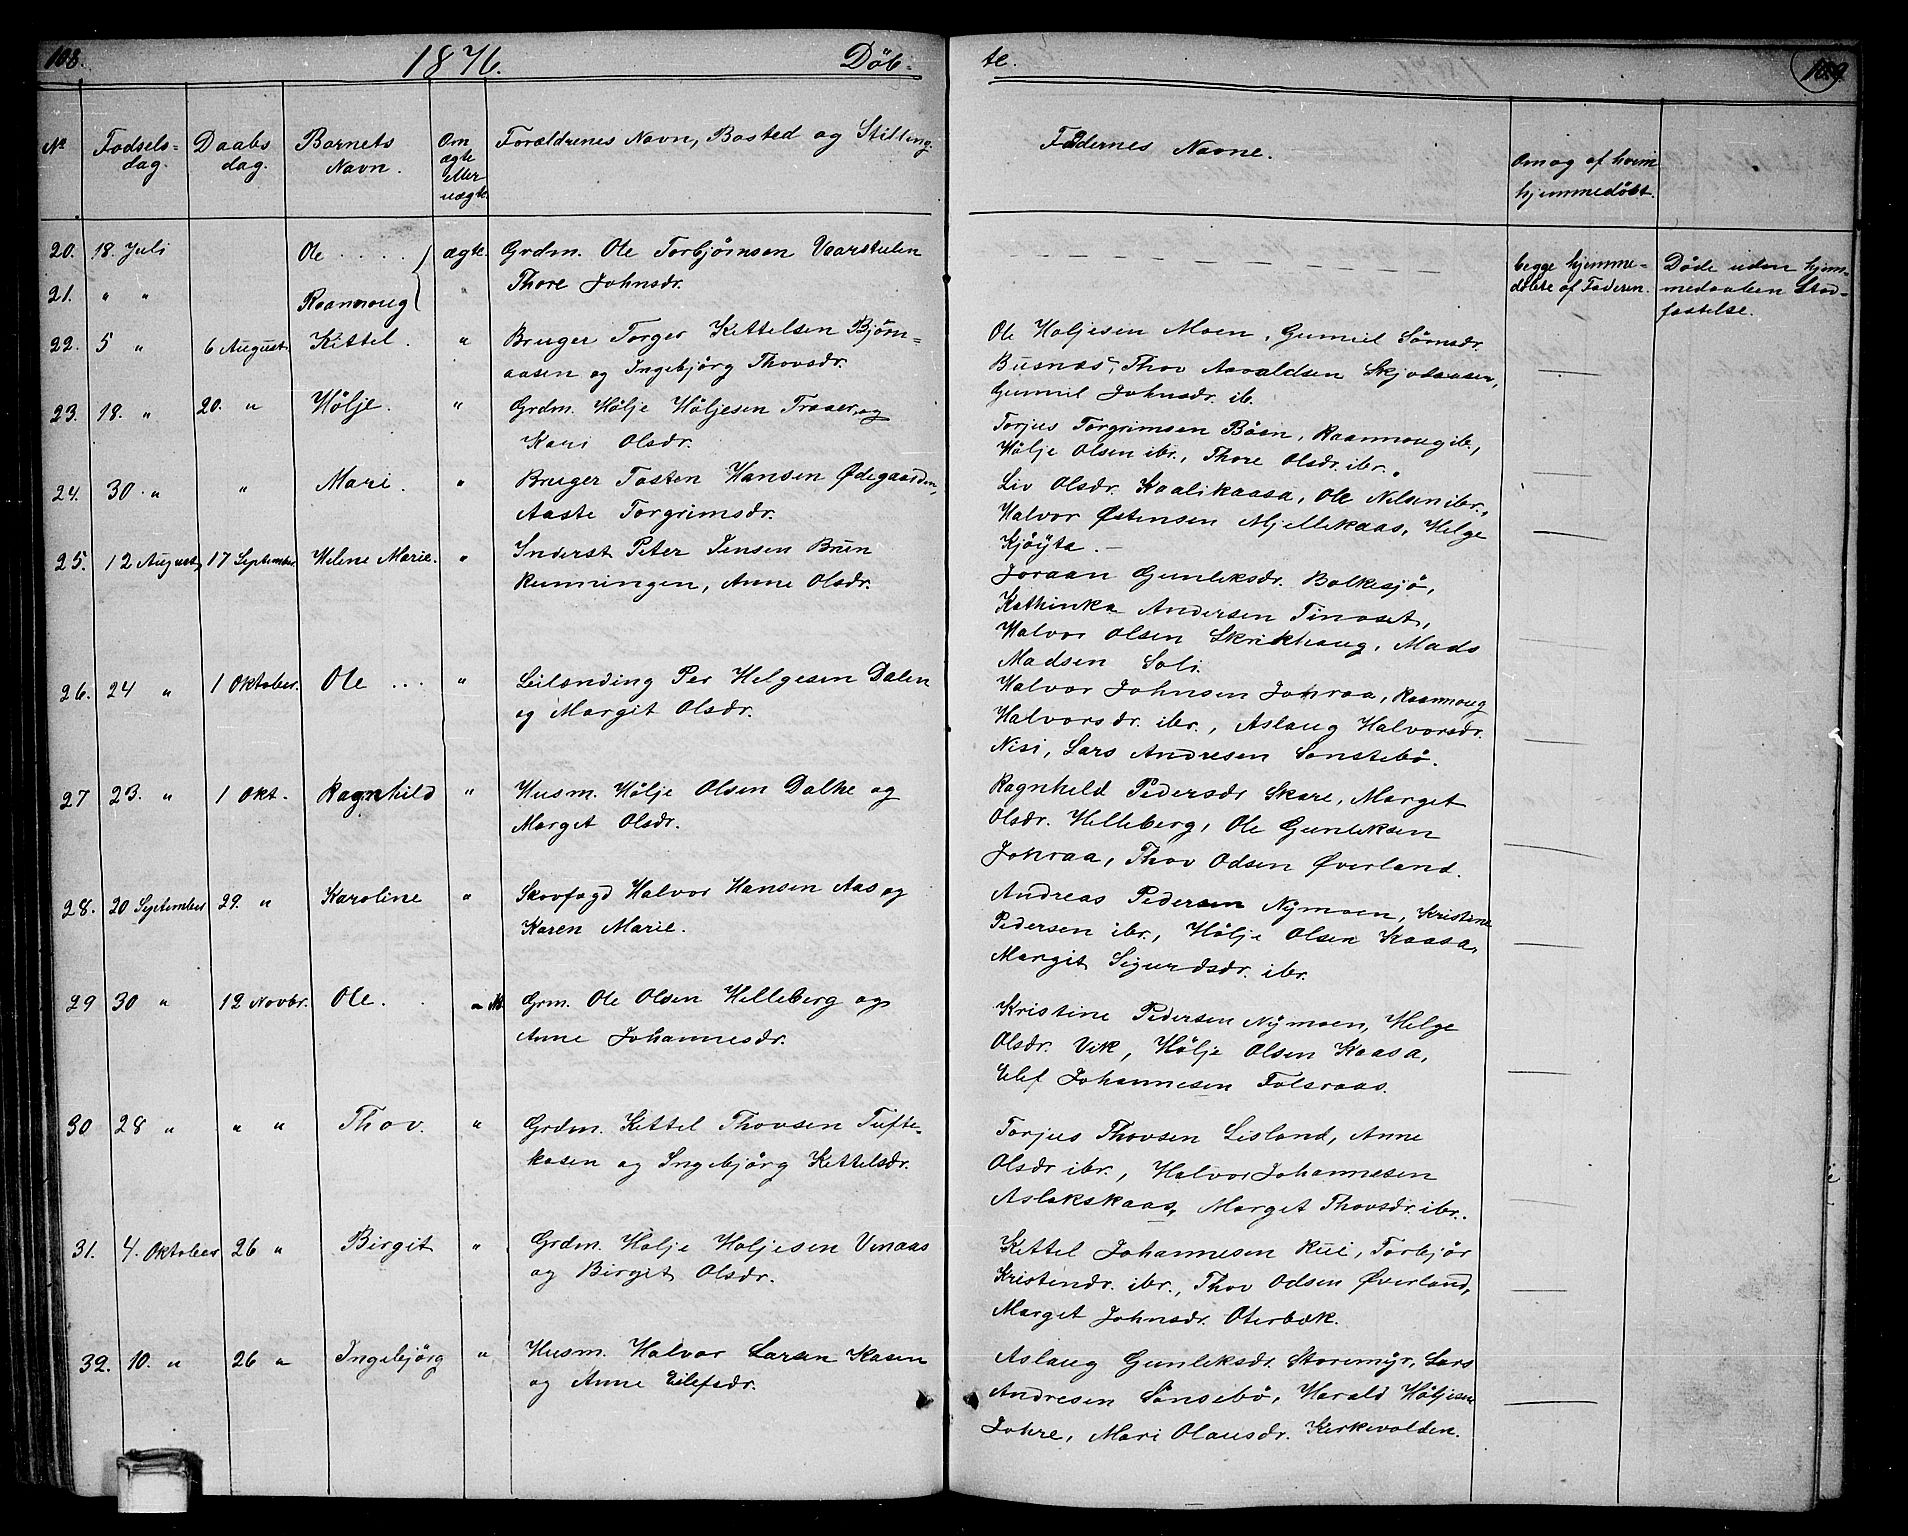 108. 1876. Døb-
No Fødsels-dag. Daabs dag. Barnets Navn. Om ægte eller uægte. Forældrenes Navn, Bosted og Stilling.
20. 18 Juli Ole . . . . . ægte. Grdm. Ole Torbjørnsen Vaarstulen
21. " " Raannoug " Thore Johnsdr.
22. 5 " 6 August. Kittel. " Bruger Torger Kittelsen Bjørn=
aasen og Ingebjørg Thovsdr.
23. 18. " 20. " Hølje. " Grdm. Hølje Høljesen Traaer, og
Kari Olsdr.
24. 30. " " Mari. " Bruger Tosten Hansen Ødegaarden,
Aaste Torgrimsdr.
25. 12 August, 17 September Helene Marie. " Inderst Peter Jensen Brun
Runningen, Anne Olsdr.
26. 24 " 1 Oktober. Ole ... " Leilænding Per Helgesen Dalen
og Margit Olsdr.
27 23. " 1 Okt. Ragnhild " Husm. Hølje Olsen Dalke og
Marget Olsdr.
28. 20 September 29. " Karoline " Skovfogd Halvor Hansen Aas og
Karen Marie.
29 30 " 12 Novbr. Ole. . " Grm. Ole Olsen Helleberg og
Anne Johannesdr.
30 28 " " " Thov. " Grdm. Kittel Thovsen Tufte-
kasen og Ingebjørg Kittelsdr.
31. 4. Oktober 26 " Birgit " Grdm. Hølje Høljesen Vinaas
og Birgit Olsdr.
32. 10. " 26 " Ingebjørg " Husm. Halvor Larsen Kasen
og Anne Eilefsdr.
te. 109.
Fadernes Navne. Om og af hvem
hjemmedøbt.
begge hjemme- Døde uden hjem-
døbte af Faderen. medaaben Stad-
fæstelse.
Ole Høljesen Moen, Gunnil Sørnsdr.
Busnæs, Thov Aavaldsen
Gunnil Johnsdr. ib.
Torjus Torgrimsen Bøen, Raannoug ib.,
Hølje Olsen ibr., Thore Olsdr. ibr.
Liv Olsdr. Kaalikaasa, Ole Nilsen ibr.,
Halvor Østensen Mjellekaas, Helge
Kjøÿta. —
Joraan Gunleksdr. Bolkesjø,
Kathinka Andersen Tinoset,
Halvor Olsen Skrikhaug, Mads
Madsen Soli.
Halvor Johnsen Johraa, Raannoug
Halvorsdr. ibr., Aslaug Halvorsdr.
Nisi, Lars Andresen Sønstebø.
Ragnhild Pedersdr Skare, Marget
Olsdr. Helleberg, Ole Gunleksen
Johraa, Thov Odsen Øverland.
Andreas Pedersen Nymoen, Kristine
Pedersen ibr., Hølje Olsen Kaasa,
Margit Sigurdsdr. ibr.
Kristine Pedersen Nymoen, Helge
Olsdr. Vik, Hølje Olsen Kaasa,
Elef Johannesen Folsraas.
Torjus Thovsen Lisland, Anne
Olsdr ibr., Halvor Johannesen
Aslakskaas, Marget Thovsdr. ibr.
Kittel Johannesen Rui, Torbjør
Kristendr. ibr., Thov Odsen Øverland,
Marget Johnsdr. Oterbæk.
Aslaug Gunleksdr. Storemyr, Lars
Andresen Sønsebø, Harald Høljesen
Johre, Mari Olausdr. Kirkevolden.